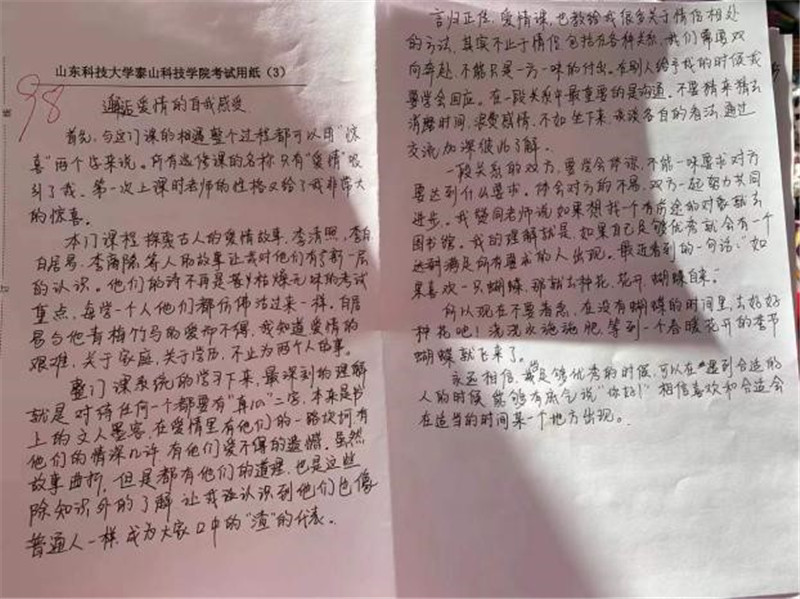 山东科技大学泰山科技学院考试用纸（3）
98
邂逅爱情的自我感受
首先，与这门课的相遇整个过程都可以用“惊
喜”两个字来说。所有选修课的名称只有“爱情”吸
引了我、第一次上课时老师的性格又给了我非常大
的惊喜。
本门课程探索古人的爱情故事，李清照，李白
白居易，李商隐等人的故事让我对他们有了新一层
的认识。他们的诗不再是枯燥无味的考试
重点，每学一个人他们都仿佛活过来一样。白居
易与他青梅竹马的爱而不得，我知道爱情的
艰难，关于家庭，关于学历，不止为两个人的事。
整门课系统的学习下来，最深刻的理解
就是对待任何一个都要有“真心”二字，本来是书
上的文人墨客，在爱情里有他们的一路坎坷有
他们的情深几许有他们爱不得的遗憾。虽然
故事曲折，但是都有他们的道理，也是这些
除知识外的了解让我认识到他们也像
普通人一样成为大家口中的“渣”的代表。
言归正传，爱情课，也教给我很多关于情侣相处
的方法，其实不止于情侣包括在各种关系，我们需要双
向奔赴，不能只是一方一味的付出。在别人给予我的时候我
要学会回应。在一段关系中最重要的是沟通，不要猜来猜去
消磨时间，浪费感情，不如坐下来，谈谈各自的看法，通过
交流加深彼此了解。
一段关系的双方，要学会体谅，不能一味要求对方
要达到什么要求。体会对方的不易，双方一起努力共同
进步。我赞同老师说如果想找一个有前途的对象就去
图书馆。我的理解就是，如果自己足够优秀就会有一个
达到满足所有要求的人出现。最近看到的一句话：“如
果喜欢一只蝴蝶，那就去种花，花开，蝴蝶自来。”
所以现在不要着急，在没有蝴蝶的时间里，去好好
种花吧！浇浇水施施肥，等到一个春暖花开的季节
蝴蝶就飞来了。
永远相信，我足够优秀的时候，可以在遇到合适的
人的时候能够有底气说“你好！”相信喜欢和合适会
在适当的时间某一个地方出现。